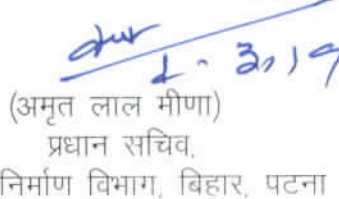 1-3-19
(अमृत लाल मीणा)
प्रधान सचिव,
निर्माण विभाग, बिहार, पटना